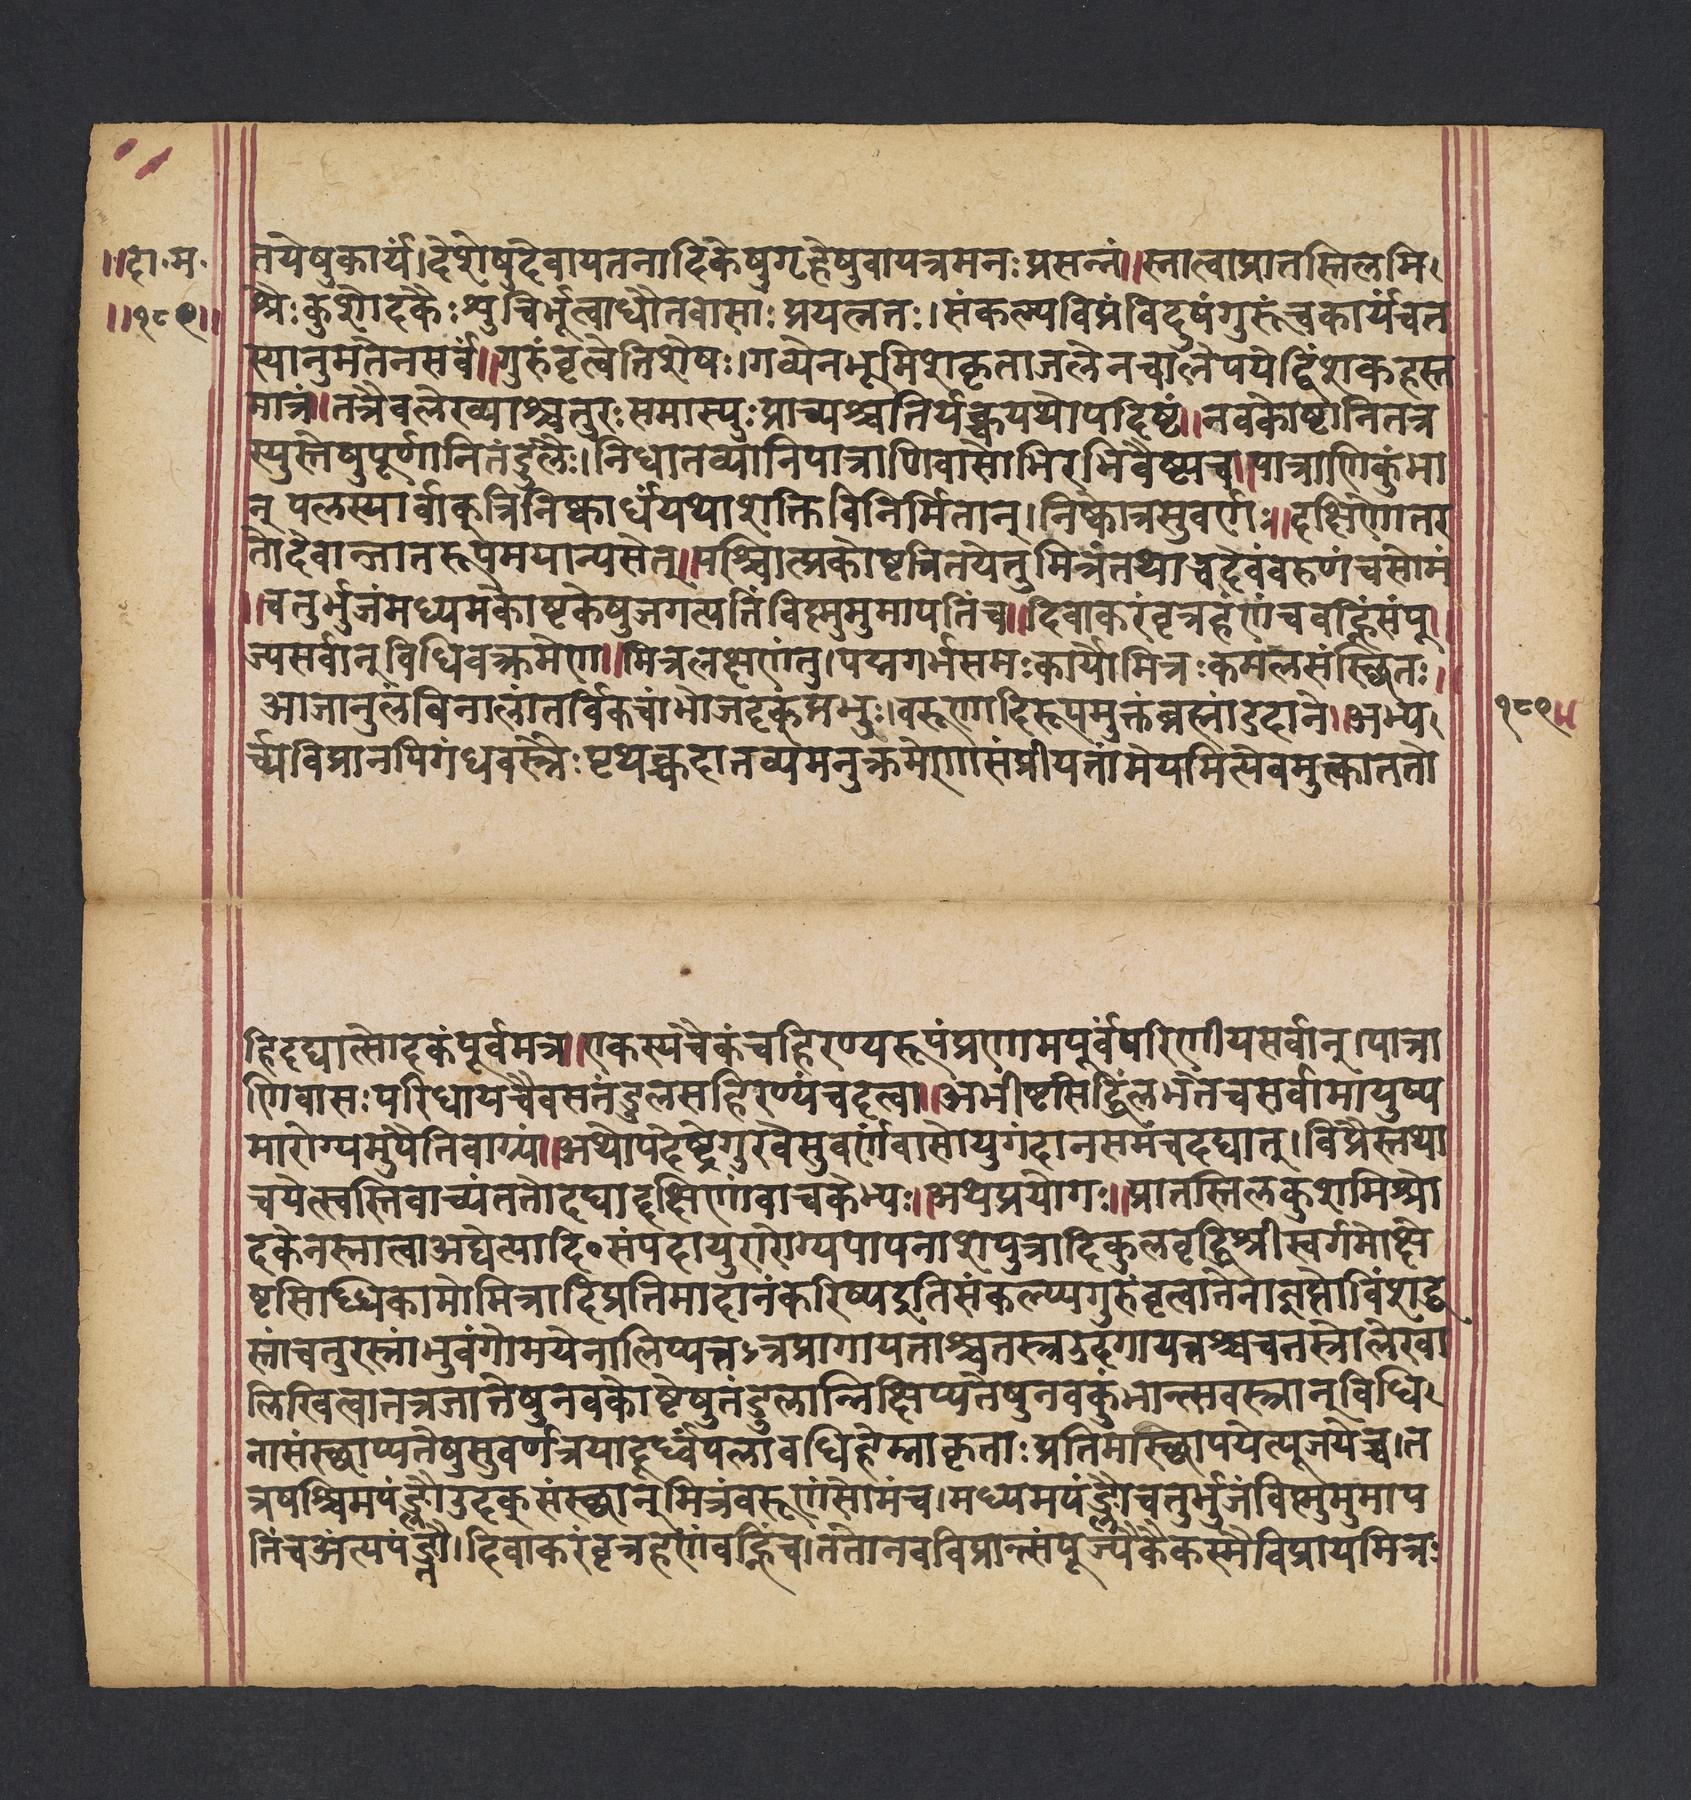 ॥दा.म.
॥१८९॥
तयेषुकार्यं।देशेषुदेवायतनादिकेषुगृहेषुवायत्रमनःप्रसन्नं॥स्नात्वाप्रातस्तिलमि
श्रैःकुशोदकैःश्शुचिर्भूत्वाधौतवासाःप्रयत्नतः।संकल्प्यविप्रंविदुषंगुरूंचकार्यंचत
स्यानुमतेनसर्वं॥गुरुंवृत्वेतिशेषः।गव्येनभूमिशकृताजलेनचालेपयेद्विंशकहस्त
मात्रं॥तत्रैवलेख्याश्चतुरःसमास्युःप्राच्यश्चतिर्यक्चयथोपदिष्टं॥नवकोष्टानितत्र
स्युस्तेषुपूर्णानितंडुलैः।निधातव्यानिपात्राणिवासोभिरभिवेष्ट्यच॥पात्राणिकुंभा
न् पलस्यार्वाक्त्रिनिष्कार्धंयथाशक्तिविनिर्मितान्।निष्कोत्रसुवर्णः॥दक्षिणोत्तर
तोदेवान्जातरूपमयान्न्यसेत्॥पश्चिात्प्रकोष्टत्रितयेतुमित्रंतथाचदेवंवरुणंचसोमं
॥चतुर्भुजंमध्यमकोष्टकेषुजगत्पतिंविष्णुमुमापतिंच॥दिवाकरंवृत्रहणंचवह्निंसंपू॥
ज्यसर्वान्विधिवत्क्रमेण॥मित्रलक्षणंतु।पद्मगर्भसमःकार्योमित्रःकमलसंस्छितः॥
आजानुलंबिनालांतर्विकचांभोजदृक्प्रभुः।वरूणादिरूपमुक्तंब्रह्मांडदाने॥अभ्य
र्च्यविप्रानपिगंधवस्त्रैःपृथक्चदातव्यमनुक्रमेणसंप्रीयतांमेयमित्येवमुत्काततो
१८९॥
हिदद्यात्सोदकंपूर्वमत्र॥एकस्यचैकंचहिरण्यरूपंप्रणामपूर्वंपरिणीयसर्वान्।पात्रा
णिवासःपरिधायचैवसतंडुलसहिरण्यंचदत्वा॥अभीष्टसिद्धिंलभतेचसर्वामायुष्य
मारोग्यमुपैतिवाग्र्यं॥अथोपदेष्ट्रेगुरवेसुवर्णंवासोयुगंदानसमंचदद्यात्।विप्रैस्तथा
चयेत्स्वस्तिवाच्यंततोदद्याद्दक्षिणांवाचकेभ्यः॥अथप्रयोगः॥प्रातस्तिलकुशमिश्रो
दकेनस्नात्वाअद्येत्यादि॰संपदायुरारोग्यपापनाशपुत्रादिकुलवृद्धिश्रीस्वर्गमोक्षे
ष्टसिध्धिकामोमित्रादिप्रतिमादानंकरिष्यइतिसंकल्प्यगुरुंवृत्वातेनाज्ञप्तोविंशद्ध
स्तांचतुरस्त्रांभुवंगोमयेनालिप्यतत्रऽत्रप्रागायताश्चतस्त्रउदगायतश्चचतस्त्रोलेखा
लिखित्वातत्रजातेषुनवकोष्टेषुतंडुलान्निक्षिप्यतेषुनवकुंभान्त्सवस्त्रान्विधि
नासंस्छाप्यतेषुसुवर्णत्रयादूर्ध्वंपलावधिहेम्नाकृताःप्रतिमास्छापयेत्पूजयेच्च।त
त्रपश्चिमपंङ्क्तौउदक्संस्छान्मित्रंवरूणंसोमंच।मध्यमपंङ्क्तौचतुर्भुजंविष्णुमुमाप
तिंचअंत्यपंङ्क्तौ।दिवाकरंवृत्रहणंवह्निंच।ततोनवविप्रान्त्संपूज्यैकैकस्मैविप्रायमित्रः